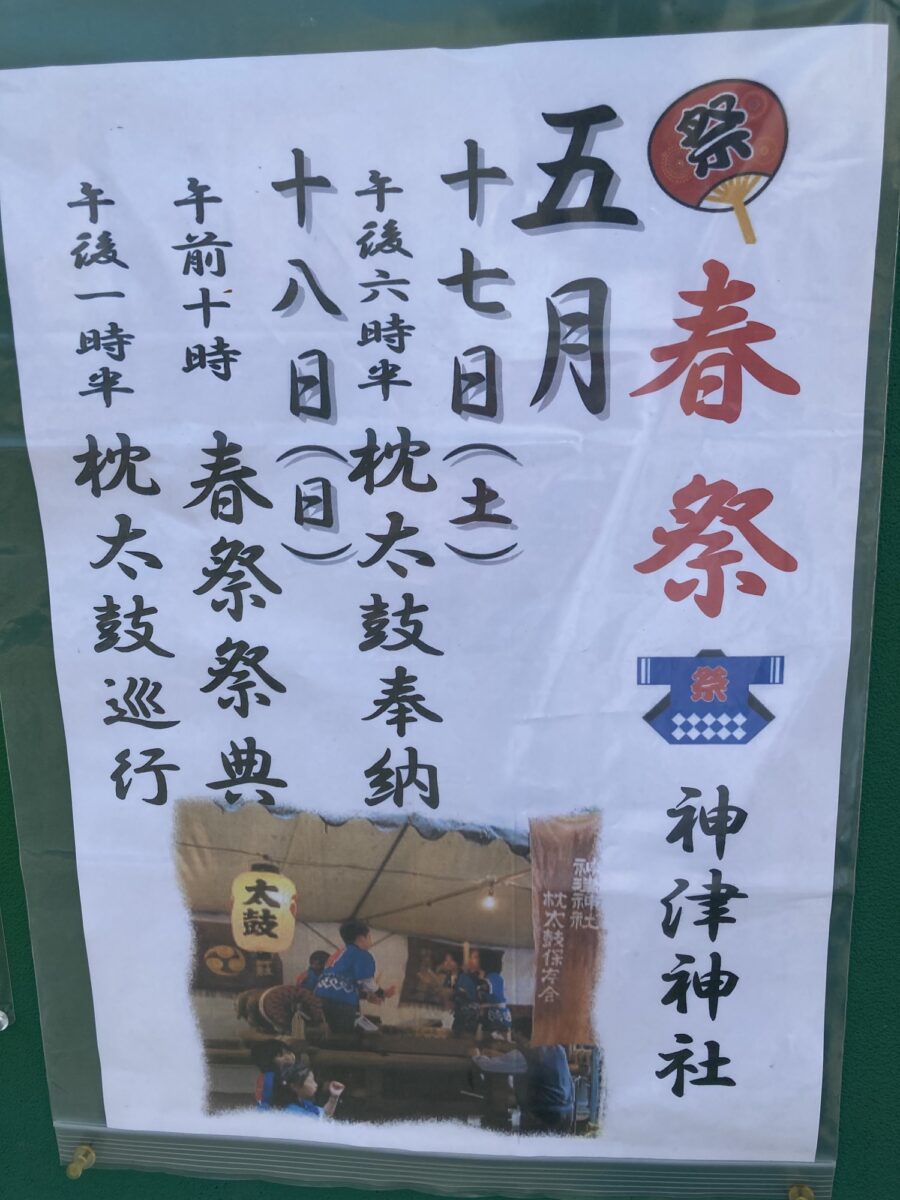 祭
春祭
祭
神津神社
五月
十七日（土）
午後六時半 枕太鼓奉納
十八日（日）
午前十時 春祭祭典
午後一時半 枕太鼓巡行
太鼓
神津神社
枕太鼓保存会